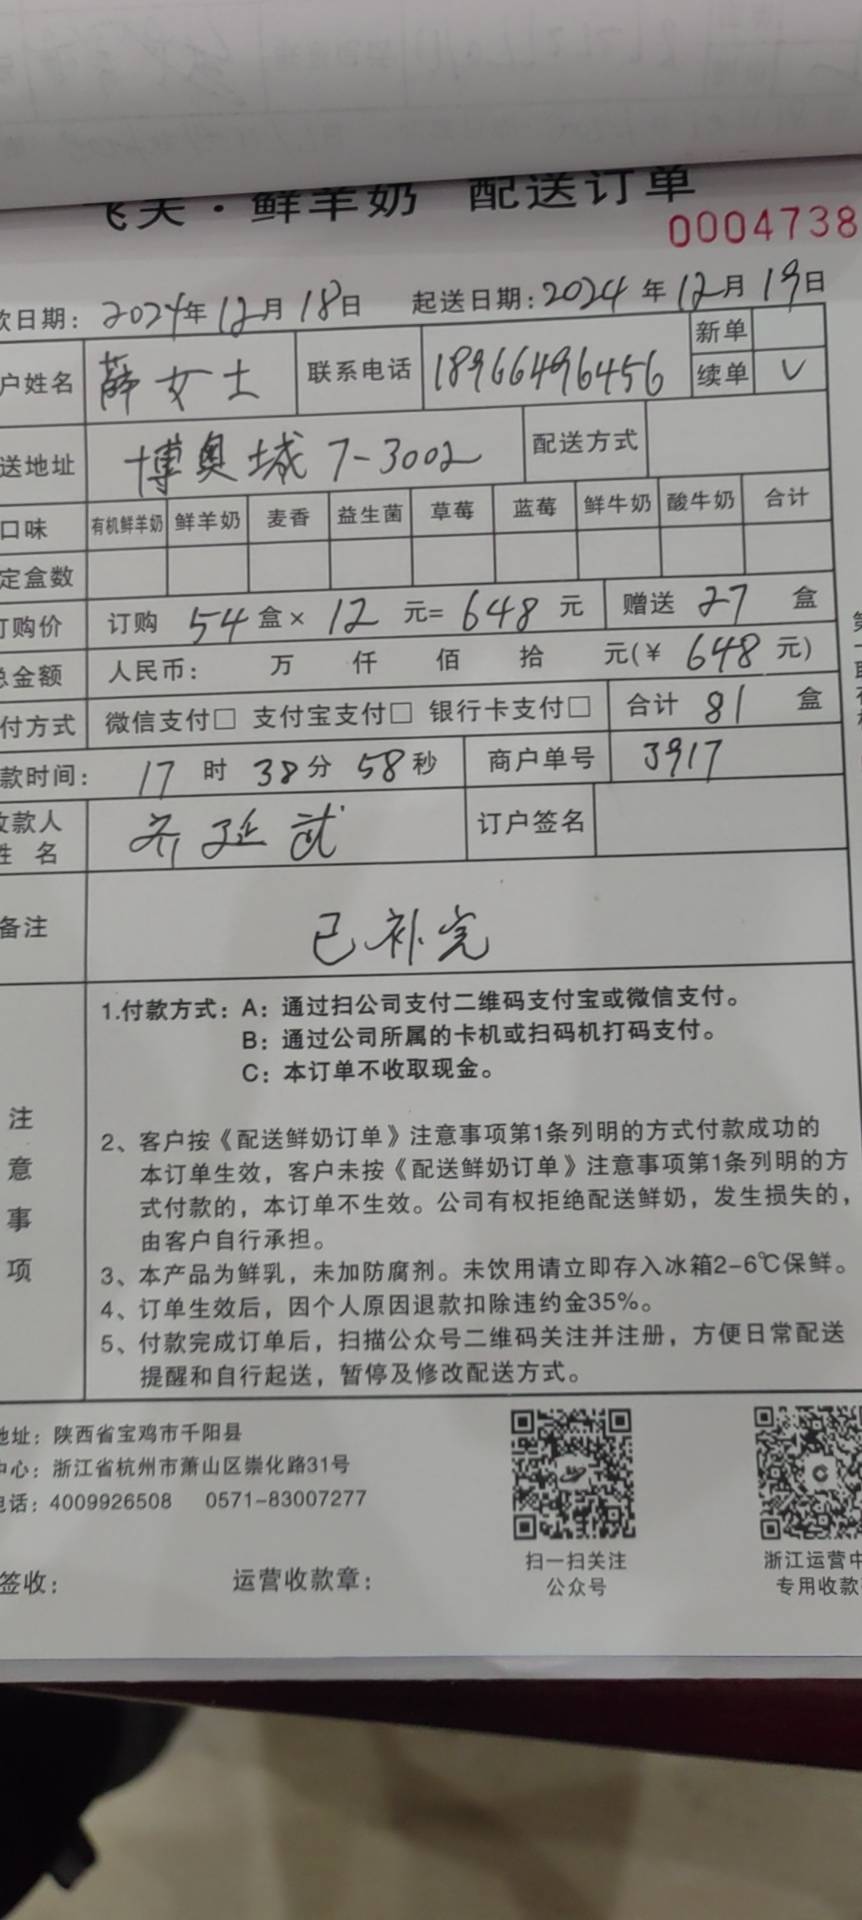 飞天·鲜羊奶 配送订单
0004738
款日期：2024年12月18日 起送日期：2024年12月19日
户姓名 薛女士 联系电话 18966496456 新单
续单 √
送地址 博奥城 7-3002 配送方式
口味 有机鲜羊奶 鲜羊奶 麦香 益生菌 草莓 蓝莓 鲜牛奶 酸牛奶 合计
定盒数
订购价 订购 54 盒× 12 元= 648 元 赠送 27 盒
总金额 人民币： 万 仟 佰 拾 元(¥ 648 元)
付方式 微信支付□ 支付宝支付□ 银行卡支付□ 合计 81 盒
款时间： 17 时 38分 58秒 商户单号 3917
收款人
姓 名 齐延武 订户签名
备注 已补完
注意事项
1.付款方式：A：通过扫公司支付二维码支付宝或微信支付。
B：通过公司所属的卡机或扫码机打码支付。
C：本订单不收取现金。
2、客户按《配送鲜奶订单》注意事项第1条列明的方式付款成功的
本订单生效，客户未按《配送鲜奶订单》注意事项第1条列明的方
式付款的，本订单不生效。公司有权拒绝配送鲜奶，发生损失的，
由客户自行承担。
3、本产品为鲜乳，未加防腐剂。未饮用请立即存入冰箱2-6℃保鲜。
4、订单生效后，因个人原因退款扣除违约金35%。
5、付款完成订单后，扫描公众号二维码关注并注册，方便日常配送
提醒和自行起送，暂停及修改配送方式。
地址：陕西省宝鸡市千阳县
中心：浙江省杭州市萧山区崇化路31号
电话：4009926508 0571-83007277
扫一扫关注
公众号
浙江运营中
专用收款
签收： 运营收款章：